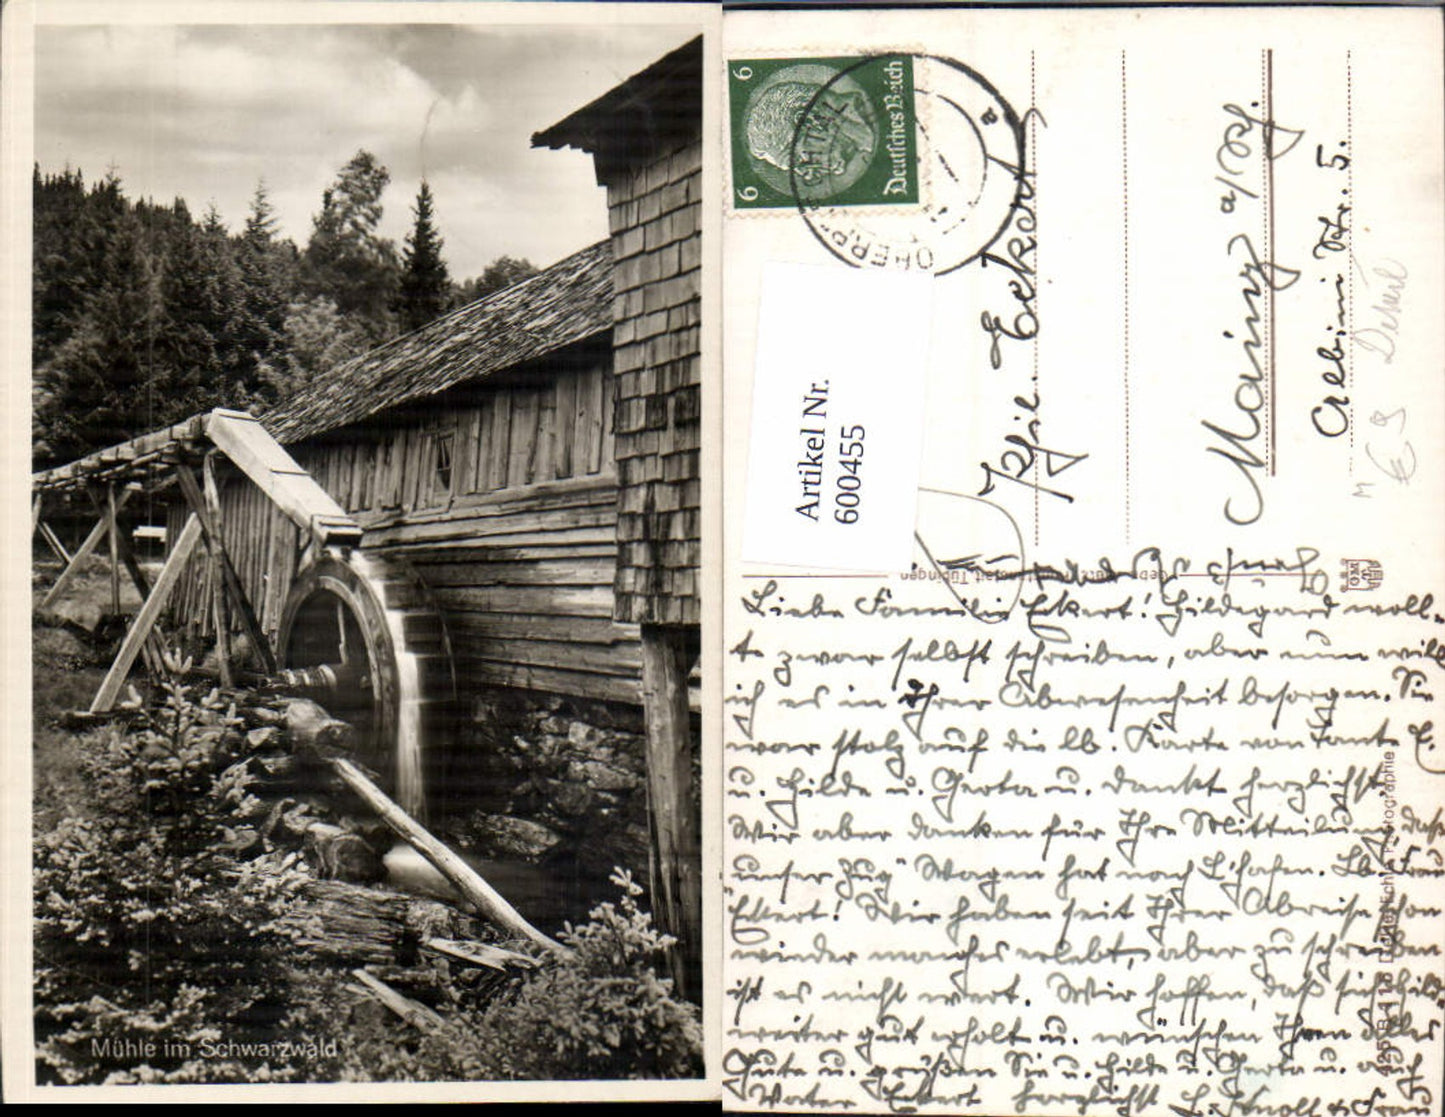 Mühle im Schwarzwald
6 6
Deutsches Reich
Artikel Nr.
600455
Eckert
Mainz a/Rh.
Albini Str. 5.
Liebe Familie Eckert! Hildegard woll-
te zwar selbst schreiben, aber nun will
ich es in Ihrer Abwesenheit besorgen. Sie
war stolz auf die lb. Karte von Tante E.
u. Hilde u. Gerta u. dankt herzlichst.
Wir aber danken für Ihre Mitteilung, daß
unser Zug Wagen hat nach L'hafen. Lb. Frau
Eckert! Wir haben seit Ihrer Abreise schon
wieder manches erlebt, aber zu schreiben
ist es nicht wert. Wir hoffen, daß sich Hilde
weiter gut erholt u. wünschen Ihnen alles
Gute u. grüßen Sie u. Hilde u. Gerta u. auch
Vater Eckert herzlichst